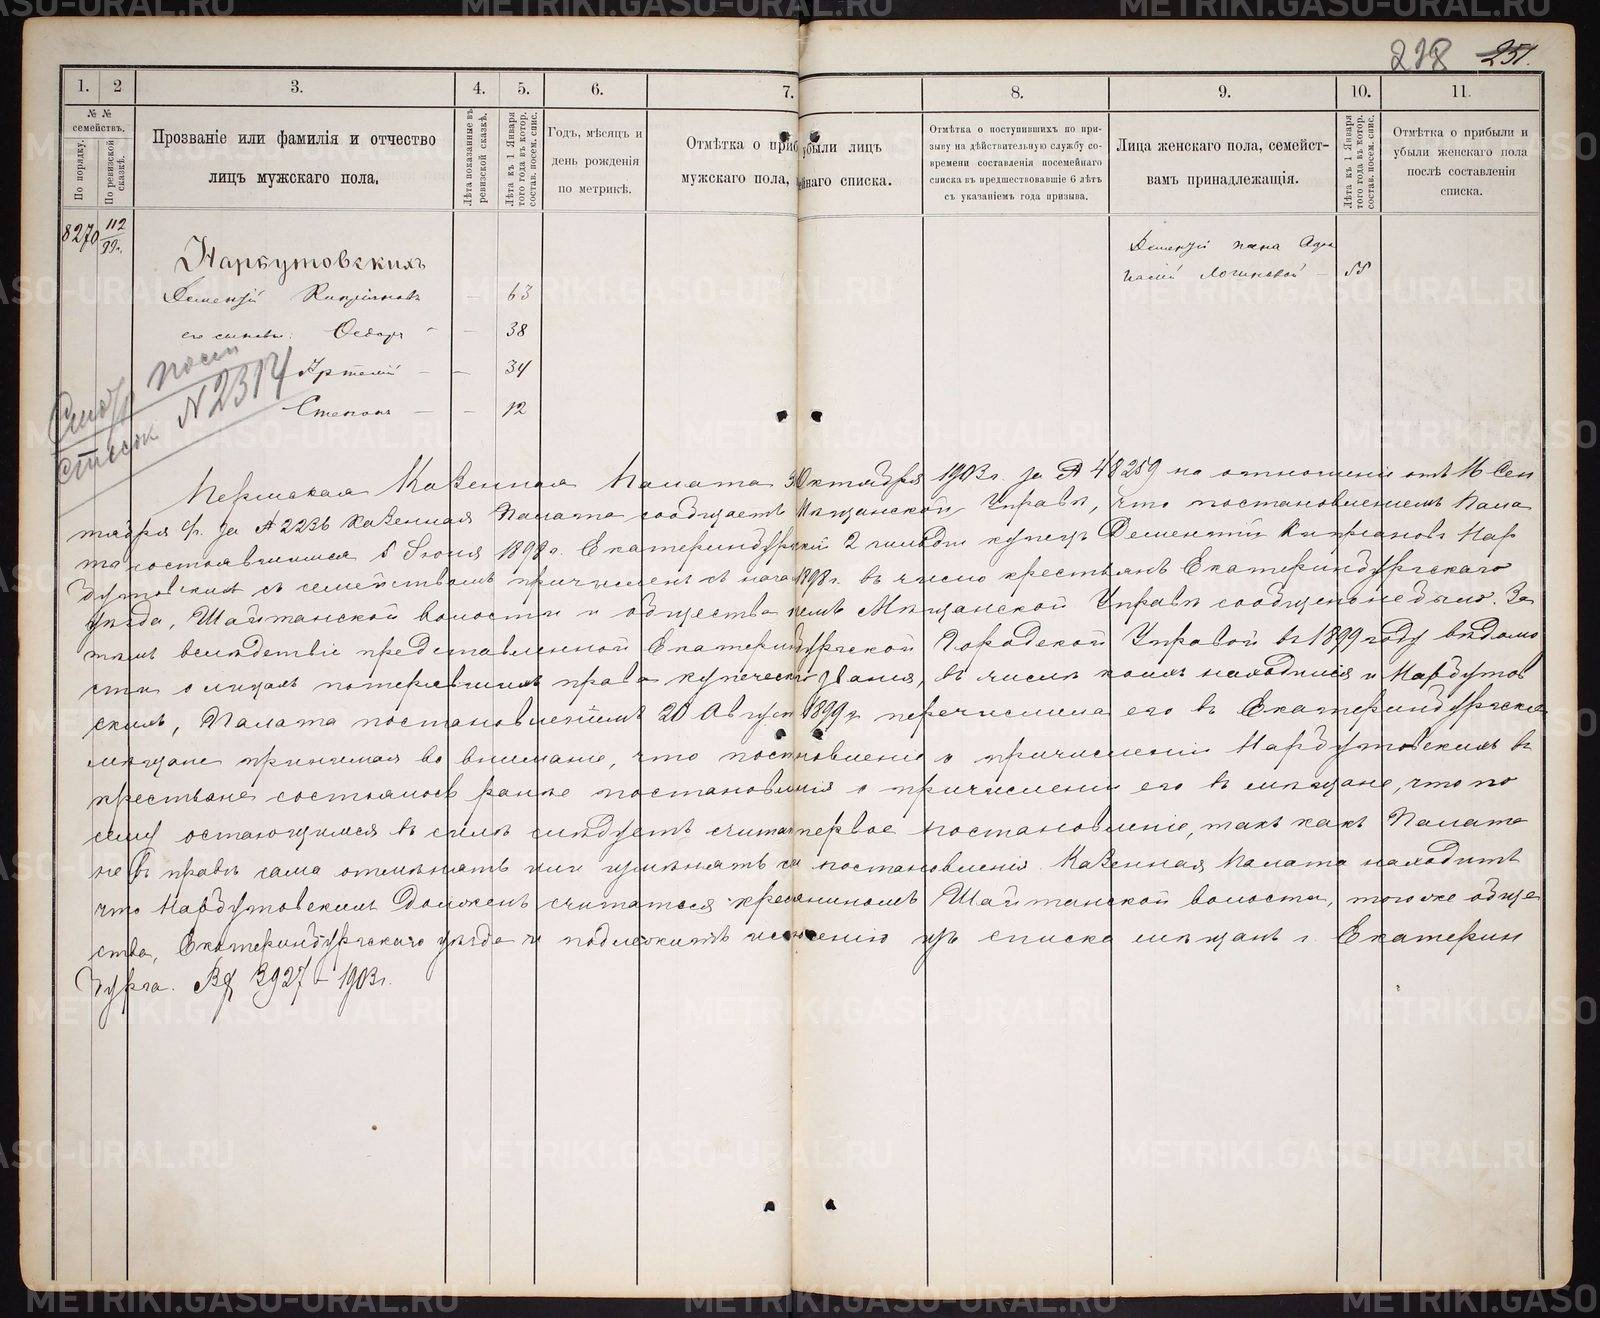 218 251.
1. 2 3. 4. 5. 6. 7. 8. 9. 10. 11.
№ № семействъ.
По порядку.
По ревизской сказкѣ.
Прозваніе или фамилія и отчество
лицъ мужскаго пола.
Лѣта показанные въ ревизской сказкѣ.
Лѣта къ 1 Января того года въ котор. состав. посем. спис.
Годъ, мѣсяцъ и
день рожденія
по метрикѣ.
Отмѣтка о приб убыли лицъ
мужскаго пола, ейнаго списка.
Отмѣтка о поступившихъ по при-
зыву на дѣйствительную службу со-
времени составленія посемейнаго
списка въ предшествовавшіе 6 лѣтъ
съ указаніемъ года призыва.
Лица женскаго пола, семейст-
вамъ принадлежащія.
Лѣта къ 1 Января того года въ котор. состав. посем. спис.
Отмѣтка о прибыли и
убыли женскаго пола
послѣ составленія
списка.
8270 112/99г.
Нарбутовскихъ
Дементій Кипріановъ — 63
его сыновья: Ѳедоръ — 38
Артемій — 34
Степанъ — 12
Дементія жена
Логиновой — 55
Смотр. посем
список N 2314
Пермская Казенная Палата 3 Октября 1903 г. за № 48259 на отношеніе отъ 16 Сен
тября с/г. за № 2236 Казенная Палата сообщаетъ Мѣщанской Управѣ, что постановленіемъ Пала
ты состоявшимся 5 Іюня 1898 г. Екатеринбургскій 2 гильдіи купецъ Дементій Кипріановъ Нар
бутовскихъ съ семействомъ причисленъ съ 1898 г. въ число крестьянъ Екатеринбургскаго
уѣзда, Шайтанской волости и общества Мѣщанской Управѣ сообщено не было. За
тѣмъ вслѣдствіе представленной Екатеринбургской Городской Управой въ 1899 году вѣдомо
сти о лицахъ потерявшихъ права купеческаго званія, въ числѣ коихъ находился и Нарбутов
скихъ, Палата постановленіемъ 20 Августа 1899 г. перечислила его въ Екатеринбургскіе
мѣщане принимая во вниманіе, что постановленіе о причисленіи Нарбутовскихъ въ
крестьяне состоялось ранѣе постановленія о причисленіи его въ мѣщане, что по
сему остающимся въ силѣ слѣдуетъ считать первое постановленіе, такъ какъ Палата
не въ правѣ сама отмѣнять или измѣнять постановленія. Казенная Палата находитъ
что Нарбутовскихъ долженъ считаться крестьяниномъ Шайтанской волости, того же обще
ства, Екатеринбургскаго уѣзда и подлежитъ исключенію изъ списка мѣщанъ г. Екатерин
бурга. Вх 3927 – 1903 г.
METRIKI.GASO-URAL.RU